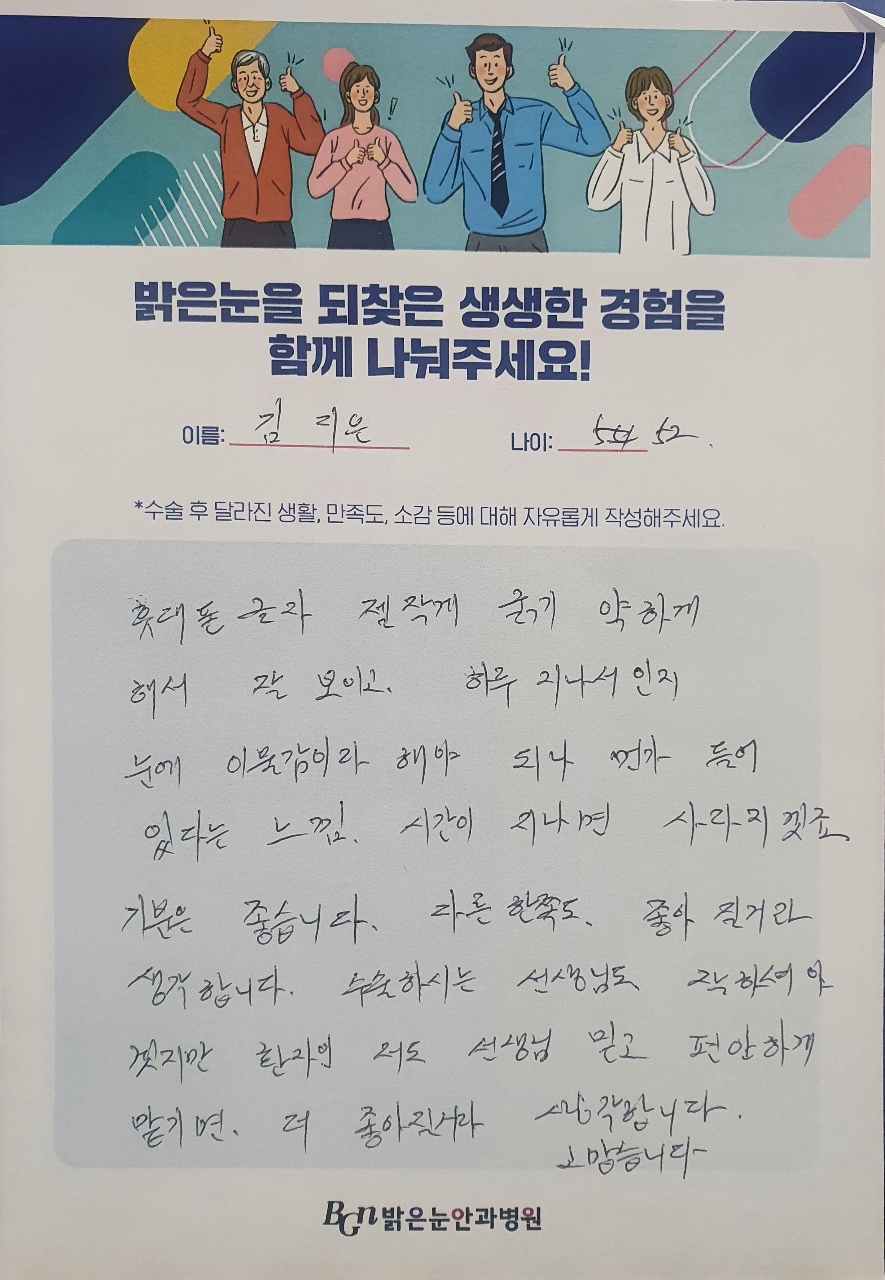 밝은눈을 되찾은 생생한 경험을
함께 나눠주세요!
이름: 김 지은 나이: 52.
*수술 후 달라진 생활, 만족도, 소감 등에 대해 자유롭게 작성해주세요.
휴대폰 글자 젤 작게 굵기 약하게
해서 잘 보이고. 하루 지나서 인지
눈에 이물감이라 해야 되나 먼가 들어
있다는 느낌. 시간이 지나면 사라지겠죠.
기분은 좋습니다. 다른 한쪽도. 좋아 질거라
생각합니다. 수술하시는 선생님도 잘 하셔야
겠지만 환자인 저도 선생님 믿고 편안하게
맡기면. 더 좋아진거라 생각합니다.
고맙습니다
BGN 밝은눈안과병원